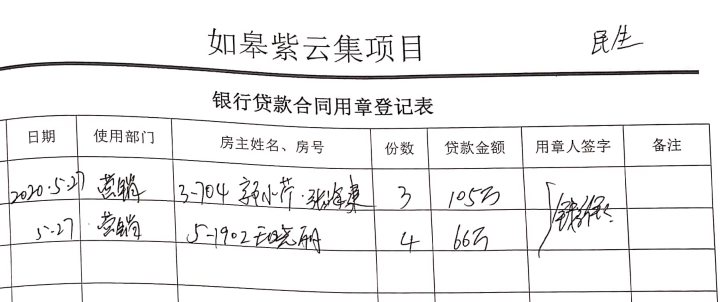 如皋紫云集项目
民生
银行贷款合同用章登记表
日期 使用部门 房主姓名、房号 份数 贷款金额 用章人签字 备注
2020.5.27 营销 3-704 小芹 · 张 3 105万
5.27 营销 5-1902 王晓丽 4 66万